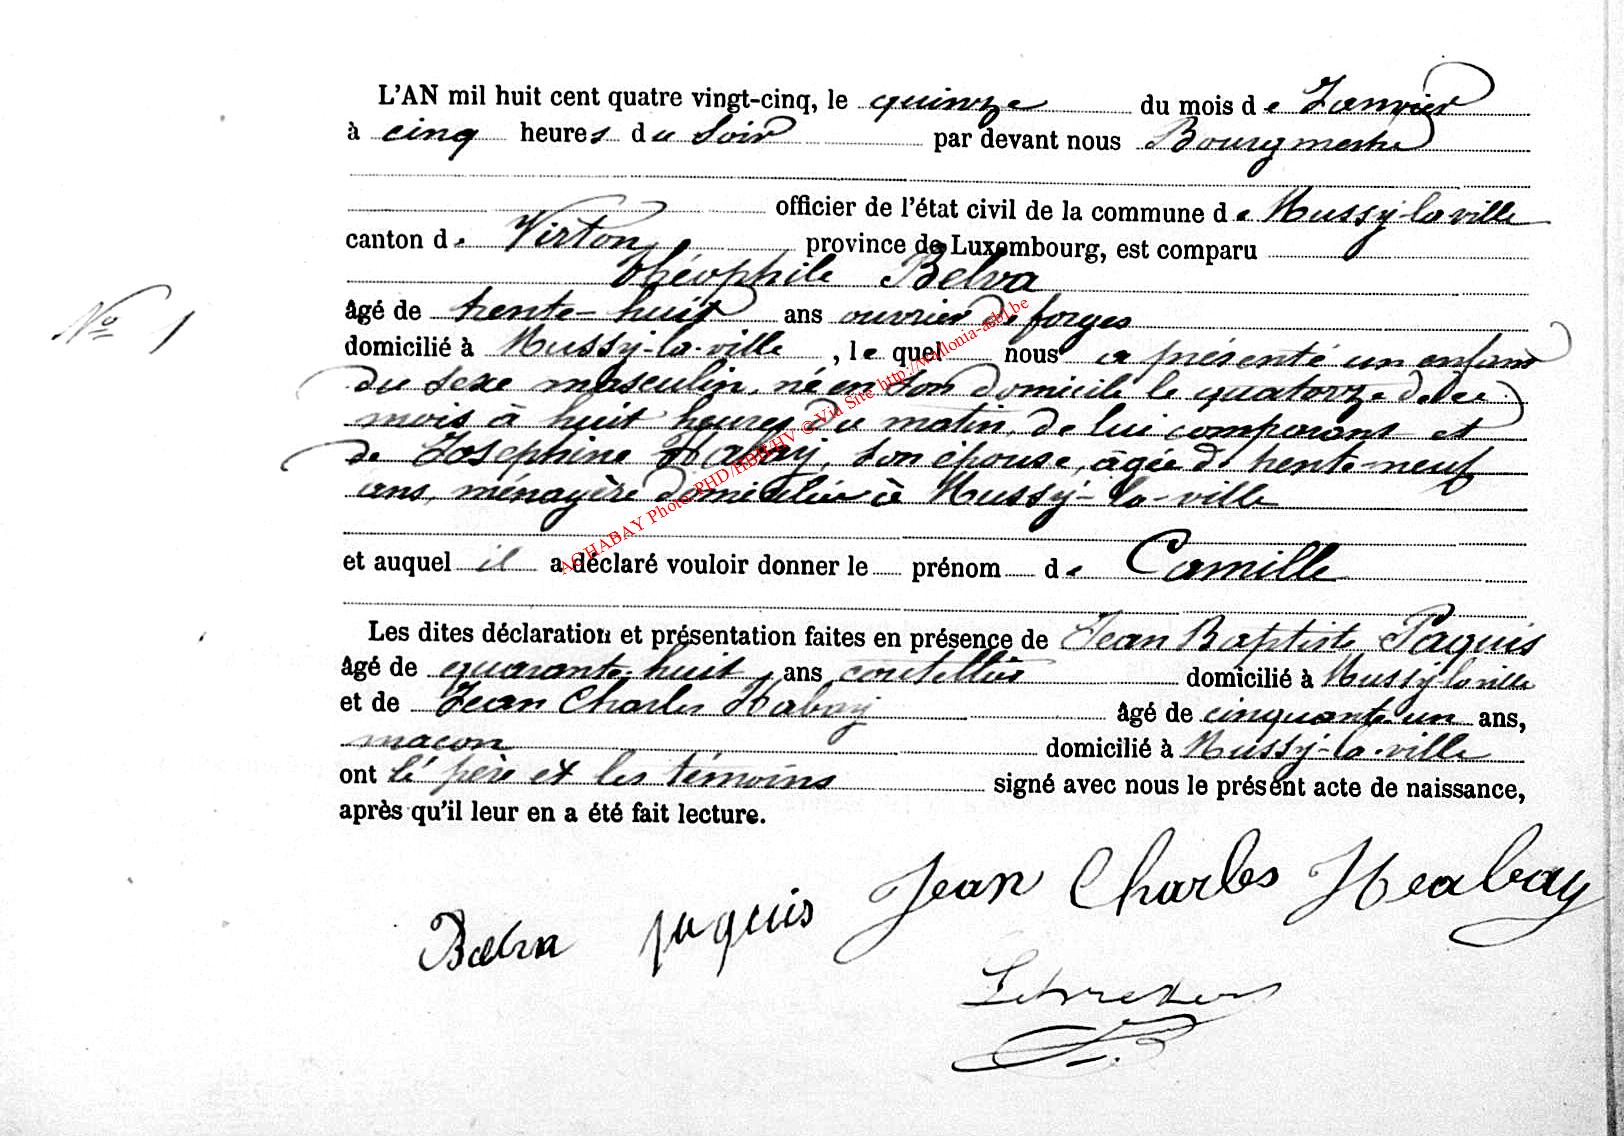 L'AN mil huit cent quatre vingt-cinq, le quinze du mois de Janvier
à cinq heures du soir par devant nous Bourgmestre
officier de l'état civil de la commune de Mussy-la-ville
canton de Virton, province de Luxembourg, est comparu
Théophile Belva
âgé de trente-huit ans ouvrier de forges
N° 1
domicilié à Mussy-la-ville, le quel nous a présenté un enfant
du sexe masculin, né en son domicile le quatorze de ce
mois à huit heures du matin, de lui comparant et
de Joséphine Habay, son épouse, âgée de trente-neuf
ans, ménagère domiciliée à Mussy-la-ville
et auquel il a déclaré vouloir donner le prénom de Camille
Les dites déclaration et présentation faites en présence de Jean Baptiste Paquis
âgé de quarante-huit ans domicilié à Mussy-la-ville
et de Jean Charles Habay âgé de cinquante un ans,
maçon domicilié à Mussy-la-ville
ont le père et les témoins signé avec nous le présent acte de naissance,
après qu'il leur en a été fait lecture.
Belva paquis Jean Charles Habay
AC HABAY Photo PHD/HBH/HV @ Via Site http://wallonia-asbl.be